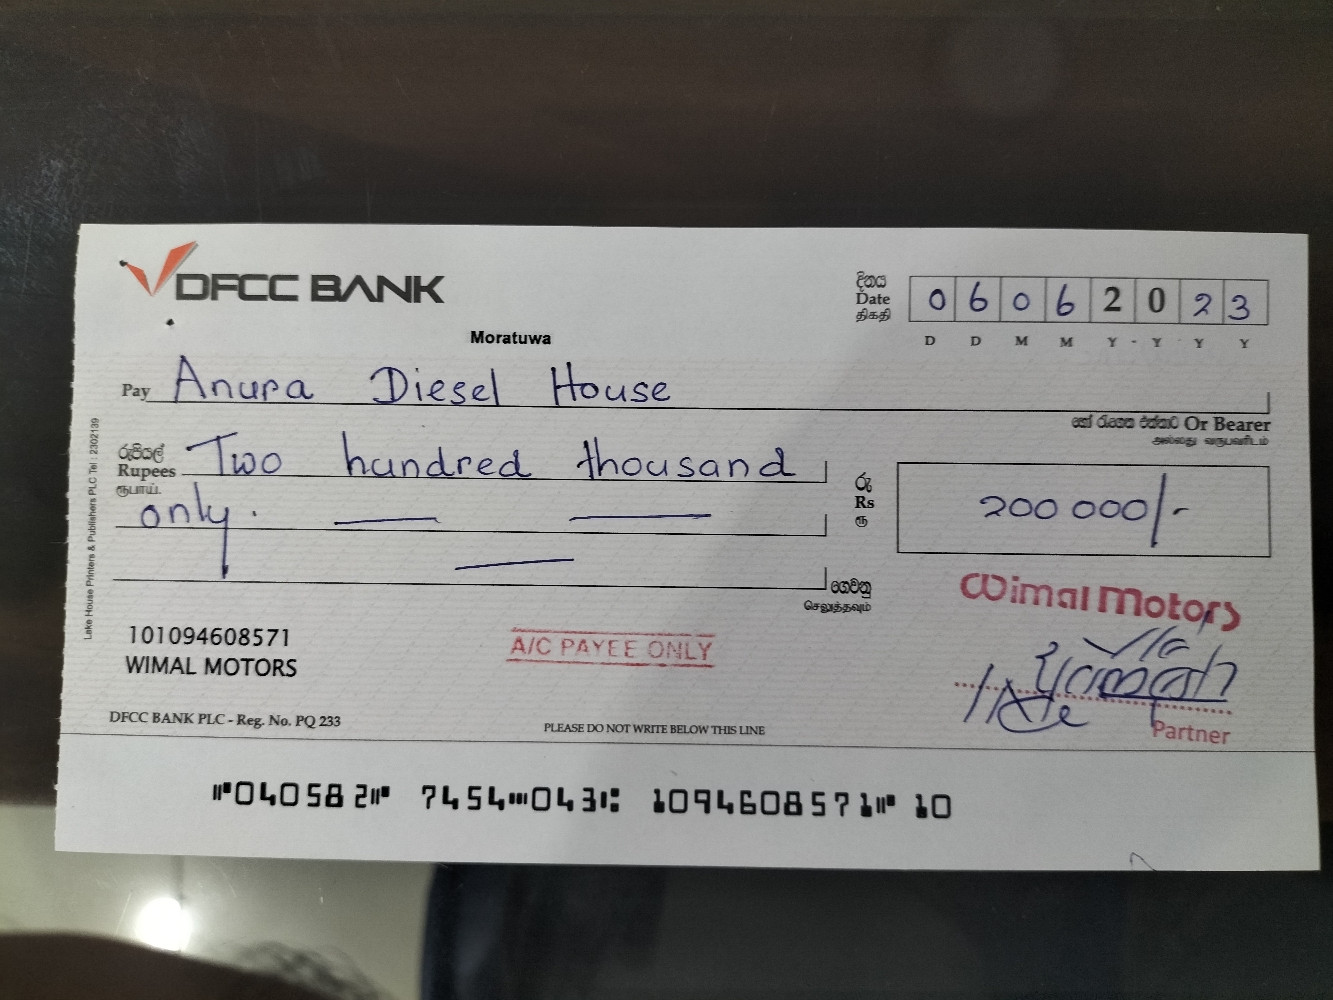 DFCC BANK
Moratuwa
දිනය
Date
திகதி
0 6 0 6 2 0 2 3
D D M M Y Y Y Y
Pay Anura Diesel House
හෝ රැගෙන එන්නාට Or Bearer
அல்லது வருபவரிடம்
රුපියල්
Rupees Two hundred thousand
ரூபாய்
only.
රු
Rs 200 000/-
ரூ
ගෙවනු
செலுத்தவும்
Lake House Printers & Publishers PLC Tel : 2302139
Wimal Motors
101094608571
WIMAL MOTORS
A/C PAYEE ONLY
Partner
DFCC BANK PLC - Reg. No. PQ 233
PLEASE DO NOT WRITE BELOW THIS LINE
⑈040582⑈ 7454⑉043⑆ 1094608571⑈ 10